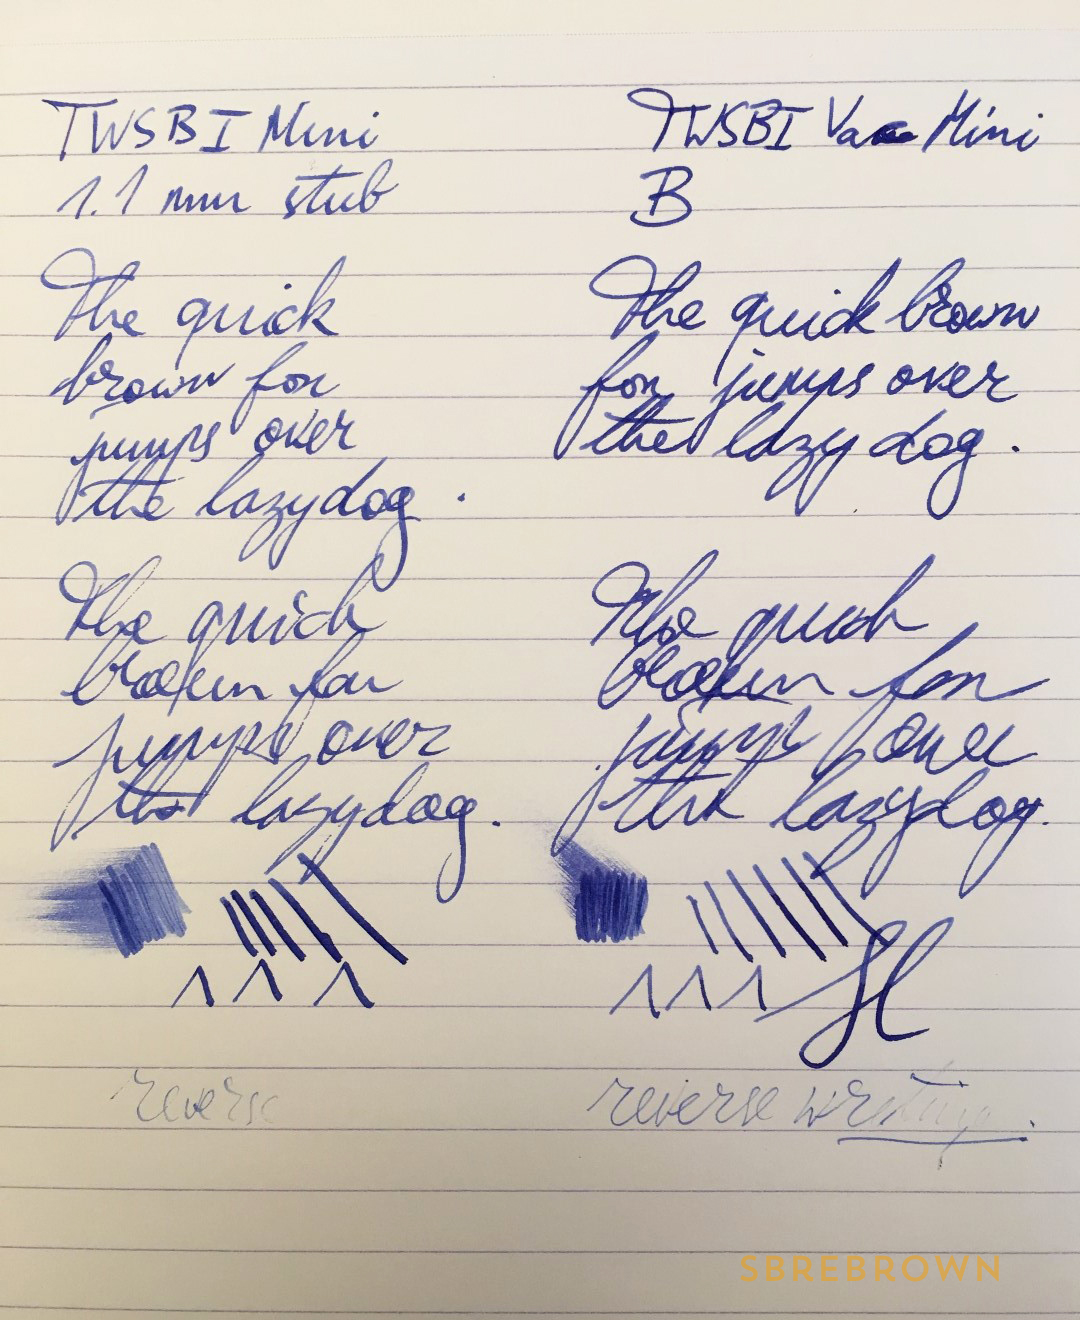 TWSBI Mini
1.1 mm stub
The quick
brown fox
jumps over
the lazy dog.
The quick
brown fox
jumps over
the lazy dog.
reverse
TWSBI Vac Mini
B
The quick brown
fox jumps over
the lazy dog.
The quick
brown fox
jumps over
the lazy dog.
reverse writing.
SBREBROWN